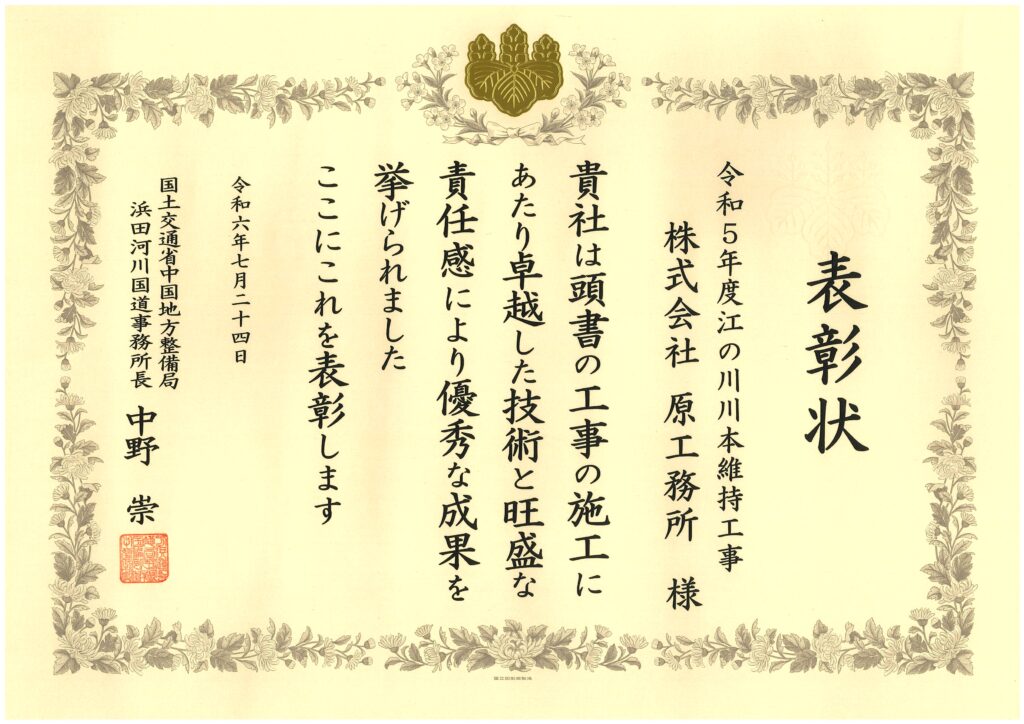 表彰状
令和5年度江の川川本維持工事
株式会社 原工務所 様
貴社は頭書の工事の施工に
あたり卓越した技術と旺盛な
責任感により優秀な成果を
挙げられました
ここにこれを表彰します
令和六年七月二十四日
国土交通省中国地方整備局
浜田河川国道事務所長 中野 崇